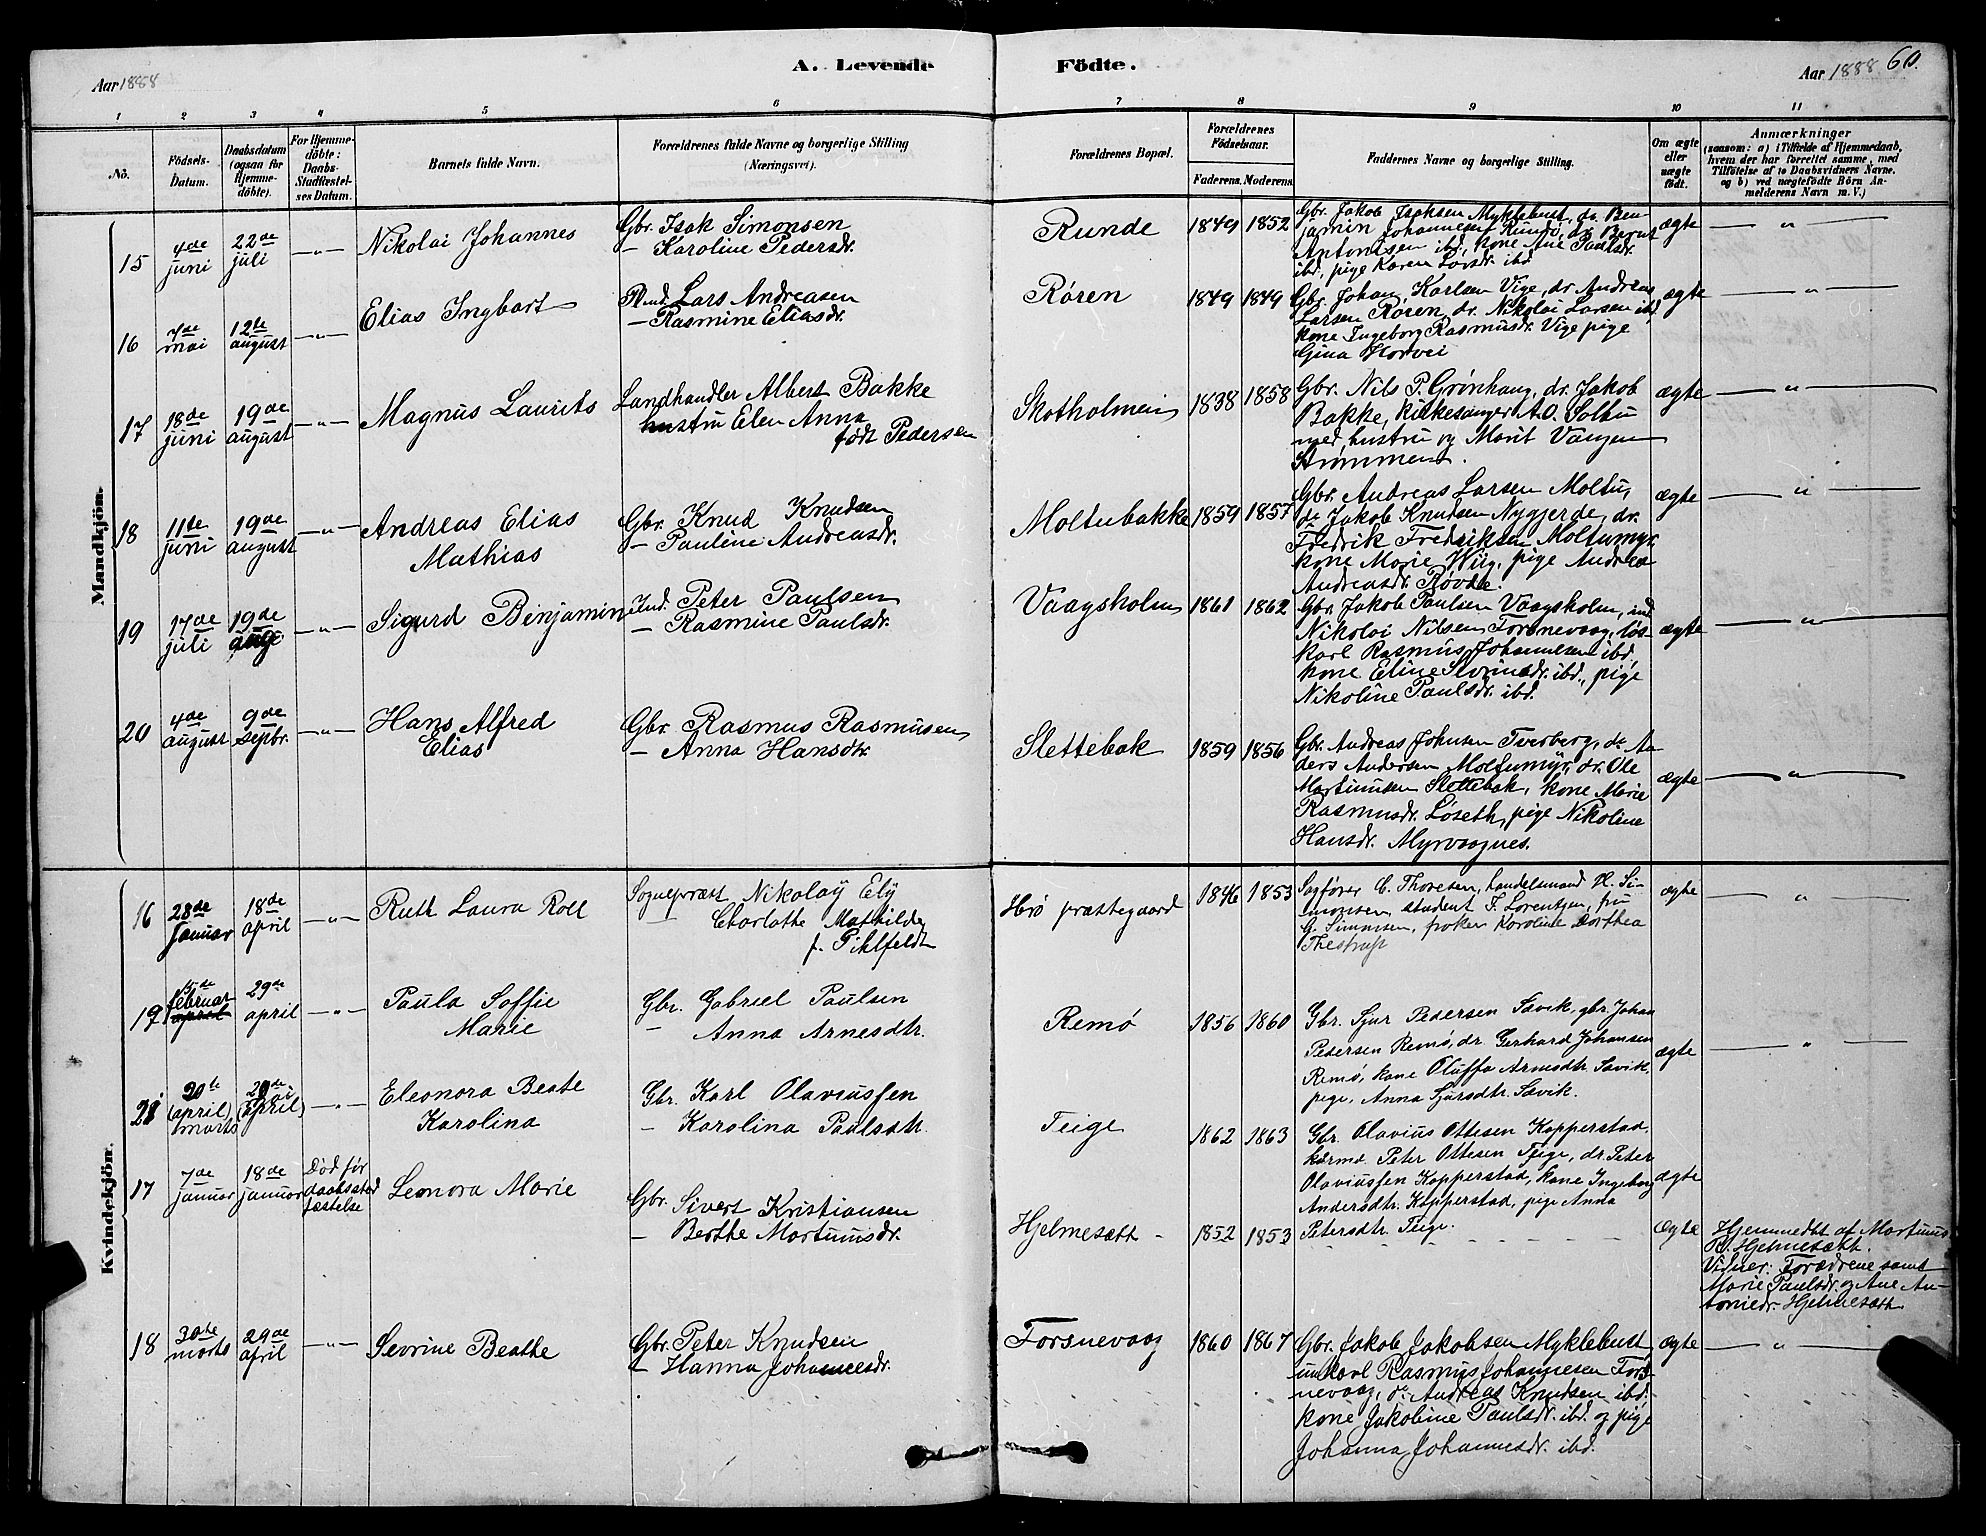 Aar 1888
A. Levende
Födte.
Aar 1888 60.
1 2 3 4 5 6 7 8 9 10 11
No.
Födsels-
Datum.
Daabsdatum
(ogsaa for
Hjemme-
döbte).
For Hjemme-
döbte:
Daabs-
Stadfæstel-
ses Datum.
Barnets fulde Navn.
Forældrenes fulde Navne og borgerlige Stilling
(Næringsvei).
Forældrenes Bopæl.
Forældrenes
Födselsaar.
Faderens. Moderens.
Faddernes Navne og borgerlige Stilling.
Om ægte
eller
uægte
födt.
Anmærkninger
(saasom: a) i Tilfælde af Hjemmedaab,
hvem der har forrettet samme, med
Tilföielse af to Daabsvidners Navne,
og b) ved uægtefödte Börn An-
melderens Navn m. V.)
Mandkjön.
15
4de
juni
22de
juli
— " —
Nikolai Johannes
Gbr. Isak Simonsen
— Karoline Pedersdr.
Runde
1849 1852
Gbr. Jakob Isaksen Myklebust, do. Ben-
jamin Johannesen Runde, do. Bernt
Antonsen ibd., kone Ane Paulsdr.
ibd., pige Karen Larsdr. ibd.
ægte
— " —
16
7de
mai
12te
august
— " —
Elias Ingbart
Lars Andreasen
— Rasmine Eliasdr.
Røren
1849 1849
Gbr. Johan Karlsen Vige, do. Andreas
Larsen Røren, do. Nikolai Larsen ibd.,
kone Ingeborg Rasmusdr. Vige pige
Gina Horvei
ægte
— " —
17
18de
juni
19de
august
— " —
Magnus Laurits
Landhandler Albert Bakke
hustru Elen Anna
født Pedersen
Skotholmen
1838 1858
Gbr. Nils P. Grønhaug, do. Jakob
Bakke, kirkesanger A.O. Soltu
med hustru og Marit Vangen
Strømmen.
ægte
— " —
18
11de
juni
19de
august
— " —
Andreas Elias
Mathias
Gbr. Knud Knudsen
— Pauline Andreasdr.
Moltubakke
1859 1857
Gbr. Andreas Larsen Moltu,
do Jakob Knudsen Nygjerde, do.
Fredrik Fredriksen Moltumyr,
kone Marie Wiig, pige Andrea
Andreasdr. Røvde.
ægte
— " —
19
17de
juli
19de
aug.
— " —
Sigurd Binjamin
Ind. Peter Paulsen
— Rasmine Paulsdr.
Vaagsholm
1861 1862
Gbr. Jakob Paulsen Vaagsholm, ind
Nikolai Nilsen Forsnevaag, løs-
karl Rasmus Johannesen ibd.,
kone Eline Sevrinsdr. ibd., pige
Nikoline Paulsdr. ibd.
ægte
— " —
20
4de
august
9de
septbr.
— " —
Hans Alfred
Elias
Gbr. Rasmus Rasmusen
— Anna Hansdtr.
Slettebak
1859 1856
Gbr. Andreas Johnsen Tverberg, do An-
ders Andersen Moltumyr, do. Ole
Martinusen Slettebak, kone Marie
Rasmusdr. Løseth, pige Nikoline
Hansdr. Myrvaagnes.
ægte
— " —
Kvindekjön.
16
28de
januar
18de
april
— " —
Ruth Laura Roll
Sogneprest Nikolay Ely
Charlotte Mathilde
f. Pihlfeldt
Herø præstegaard
1846 1853
Sagfører C. Thoresen, handelsmand H. Si-
monsen, student F. Lorentzen, fru
G. Simonsen, frøken Karoline Dorthea
Thestrup
ægte
— " —
19
februar
april
29de
april
— " —
Paula Soffie
Marie
Gbr. Gabriel Paulsen
— Anna Arnesdtr.
Remø
1856 1860
Gbr. Sjur Pedersen Sævik, gbr. Johan
Pedersen Remø, do. Gerhard Johansen
Remø, kone Oluffa Arnesdtr Sævik,
pige, Anna Sjursdtr. Sævik.
ægte
— " —
20te
(april)
marts
(april)
— " —
Eleonora Beate
Karolina
Gbr. Karl Olaviussen
— Karolina Paulsdtr.
Teige
1862 1863
Gbr. Olavius Ottesen Kopperstad,
kaarmd. Peter Ottesen Teige, do. Peter
Olaviussen Kopperstad, kone Ingeborg
Andersdtr. Kopperstad, pige Anna
Petersdtr. Teige.
ægte
17
7de
januar
18de
januar
Død før
daabsstad
fæstelse
Leonora Marie
Gbr. Sivert Kristiansen
— Berthe Martinusdr.
Hjelmesætt -
1852 1853
- - - - - -
Ægte
Hjemmedbt af Martinus
R. Hjelmesætt.
Vidner: Forældrene samt
Marie Paulsdr. og Ane An-
toniedr. Hjelmesætt
18
30te
marts
29de
april
— " —
Sevrine Beathe
Gbr. Peter Knudsen
— Hanna Johannesdr.
Forsnevaag
1860 1867
Gbr. Jakob Jakobsen Myklebust,
unkarl Rasmus Johannesen Fors-
nevaag, do. Andreas Knudsen ibd.
kone Jakobine Paulsdr. ibd. og pige
Johanna Johannesdr. ibd.
ægte
— " —